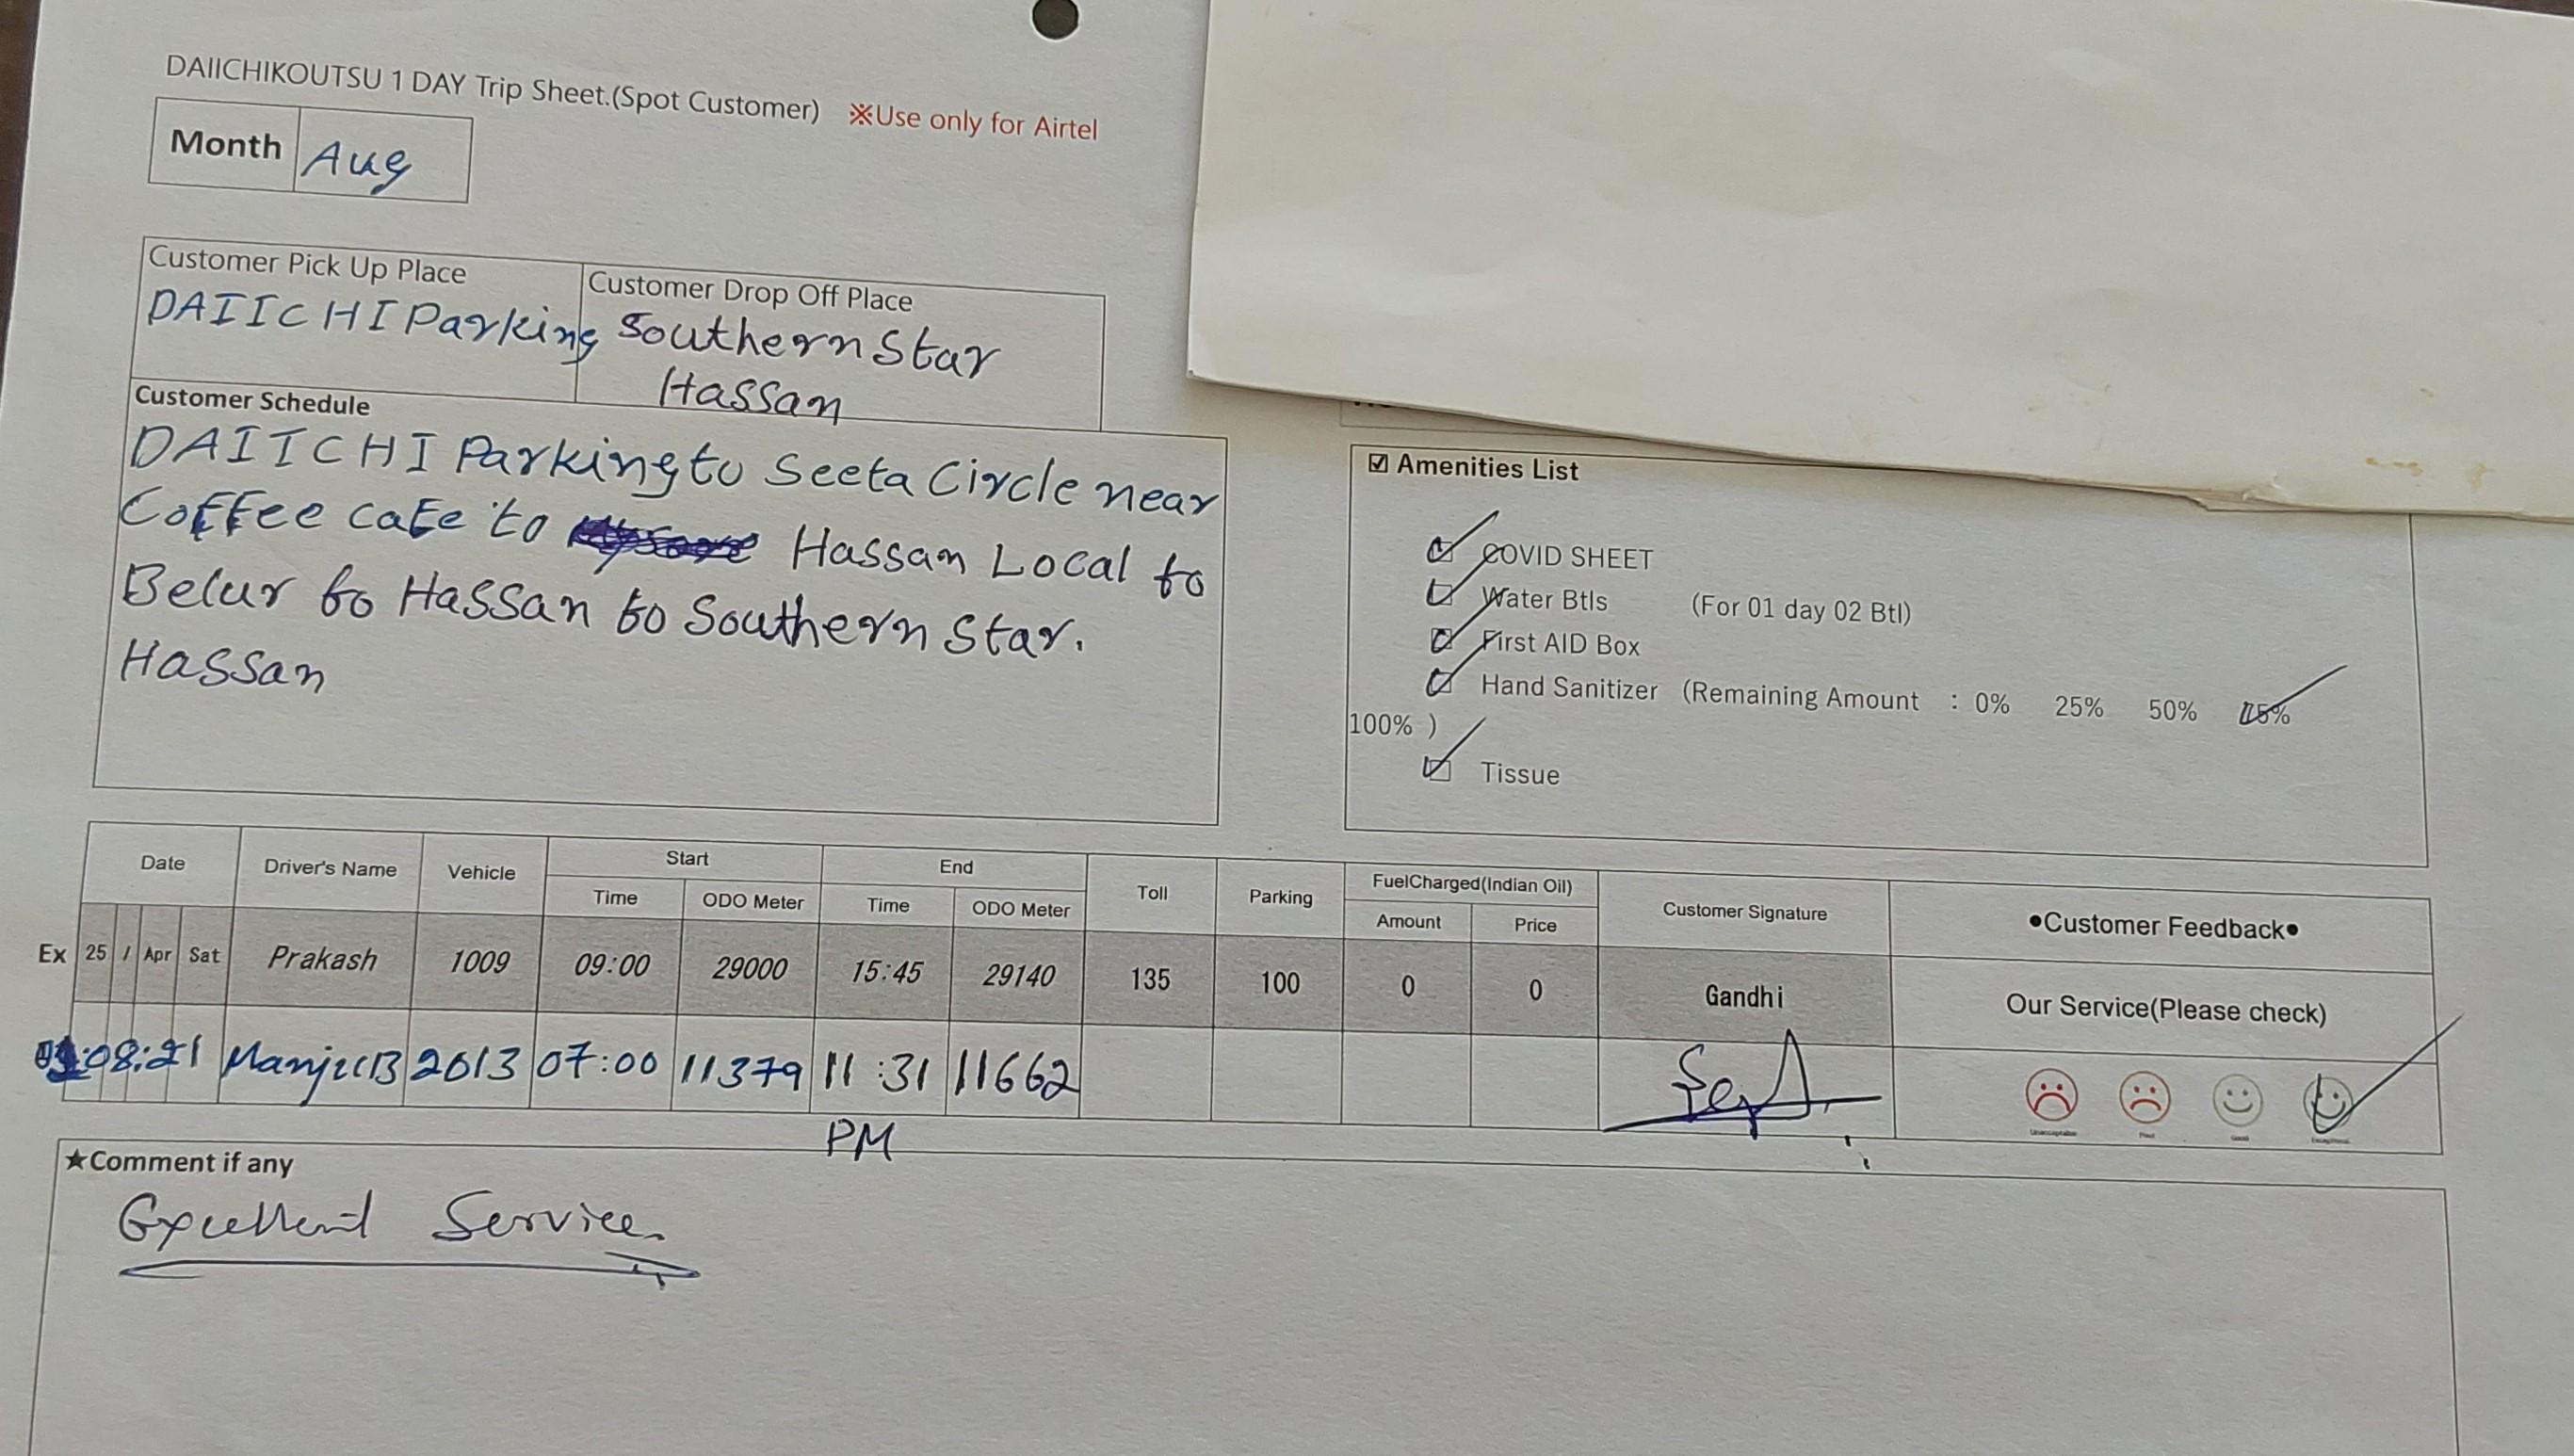 DAIICHIKOUTSU 1 DAY Trip Sheet.(Spot Customer) ※Use only for Airtel
Month Aug
Customer Pick Up Place
DAIICHI Parking
Customer Drop Off Place
Southern Star
Hassan
Customer Schedule
DAIICHI Parking to Seeta Circle near
Coffee cafe to Hassan Local to
Belur to Hassan to Southern Star.
Hassan
☑ Amenities List
COVID SHEET
Water Btls (For 01 day 02 Btl)
First AID Box
Hand Sanitizer (Remaining Amount : 0% 25% 50% 75%
100% )
Tissue
Date Driver's Name Vehicle Start End Toll Parking FuelCharged(Indian Oil) Customer Signature ●Customer Feedback●
Time ODO Meter Time ODO Meter Amount Price
Ex 25 / Apr Sat Prakash 1009 09:00 29000 15:45 29140 135 100 0 0 Gandhi Our Service(Please check)
08:21 Manju B 2013 07:00 11379 11:31 11662
PM
★Comment if any
Excellent Service.